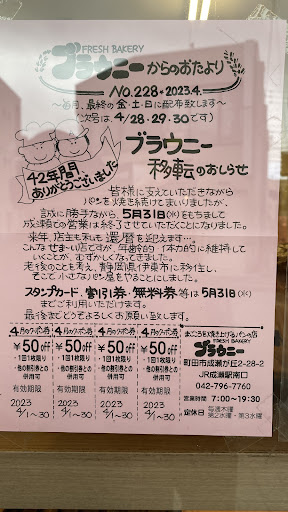 FRESH BAKERY
ブラウニーからのおたより
No.228・2023.4.
〜毎月、最終の金・土・日に配布致します〜
(次号は、4/28・29・30です)
42年間
ありがとうございました
ブラウニー
移転のおしらせ
皆様に支えていただきながら
パンを焼き続けてまいりましたが、
誠に勝手ながら、5月31日(水)をもちまして
成瀬での営業は終了させていただくことになりました。
来年、店主も私も還暦を迎えます…
こんなせまーい店ですが、年齢的・体力的に維持して
いくことが、むずかしくなってきました。
老後のことも考え、静岡県伊東市に移住し、
そこで小さなパン屋をやることにしました。
スタンプカード、割引券・無料券 等は5月31日(水)
までご利用いただけます。
最後までどうぞよろしくお願い致します。
4月のクーポン券 4月のクーポン券 4月のクーポン券 4月のクーポン券
¥50off ¥50off ¥50off ¥50off
・1回1枚限り ・1回1枚限り ・1回1枚限り ・1回1枚限り
・他の割引券との併用可 ・他の割引券との併用可 ・他の割引券との併用可 ・他の割引券との併用可
有効期限 有効期限 有効期限 有効期限
2023 2023 2023 2023
4/1〜30 4/1〜30 4/1〜30 4/1〜30
まごころを焼き上げるパンの店
FRESH BAKERY
ブラウニー
町田市成瀬が丘2-28-2
JR成瀬駅南口
042-796-7760
営業時間 7:00〜19:30
定休日 毎週木曜
第2水曜・第3水曜